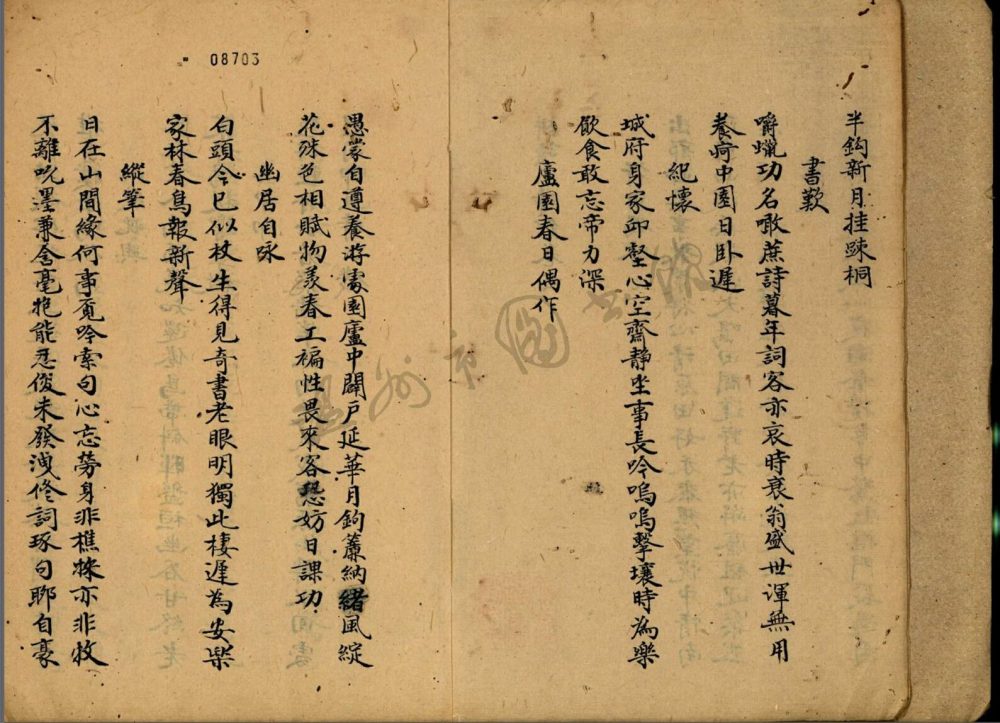 08703
半鈎新月挂踈桐
書歎
嚼蠟功名噉蔗詩暮年詞客亦哀時衰翁盛世渾無用
養疴中園日卧遲
紀懷
城府身家邱壑心空齋静坐事長吟嗚嗚擊壤時為樂
飲食敢忘帝力深
廬園春日偶作
愚蒙自遵養游處園廬中闢戶延華月鉤簾納緒風綻
花殊色相賦物羨春工褊性畏來客恐妨日課功
幽居自咏
白頭今已似枚生得見奇書老眼明獨此棲遲為安樂
家林春鳥報新聲
縱筆
日在山間緣何事覓吟索句心忘勞身非樵採亦非牧
不離吮墨兼含毫能忍俊未發洩修詞琢句聊自豪